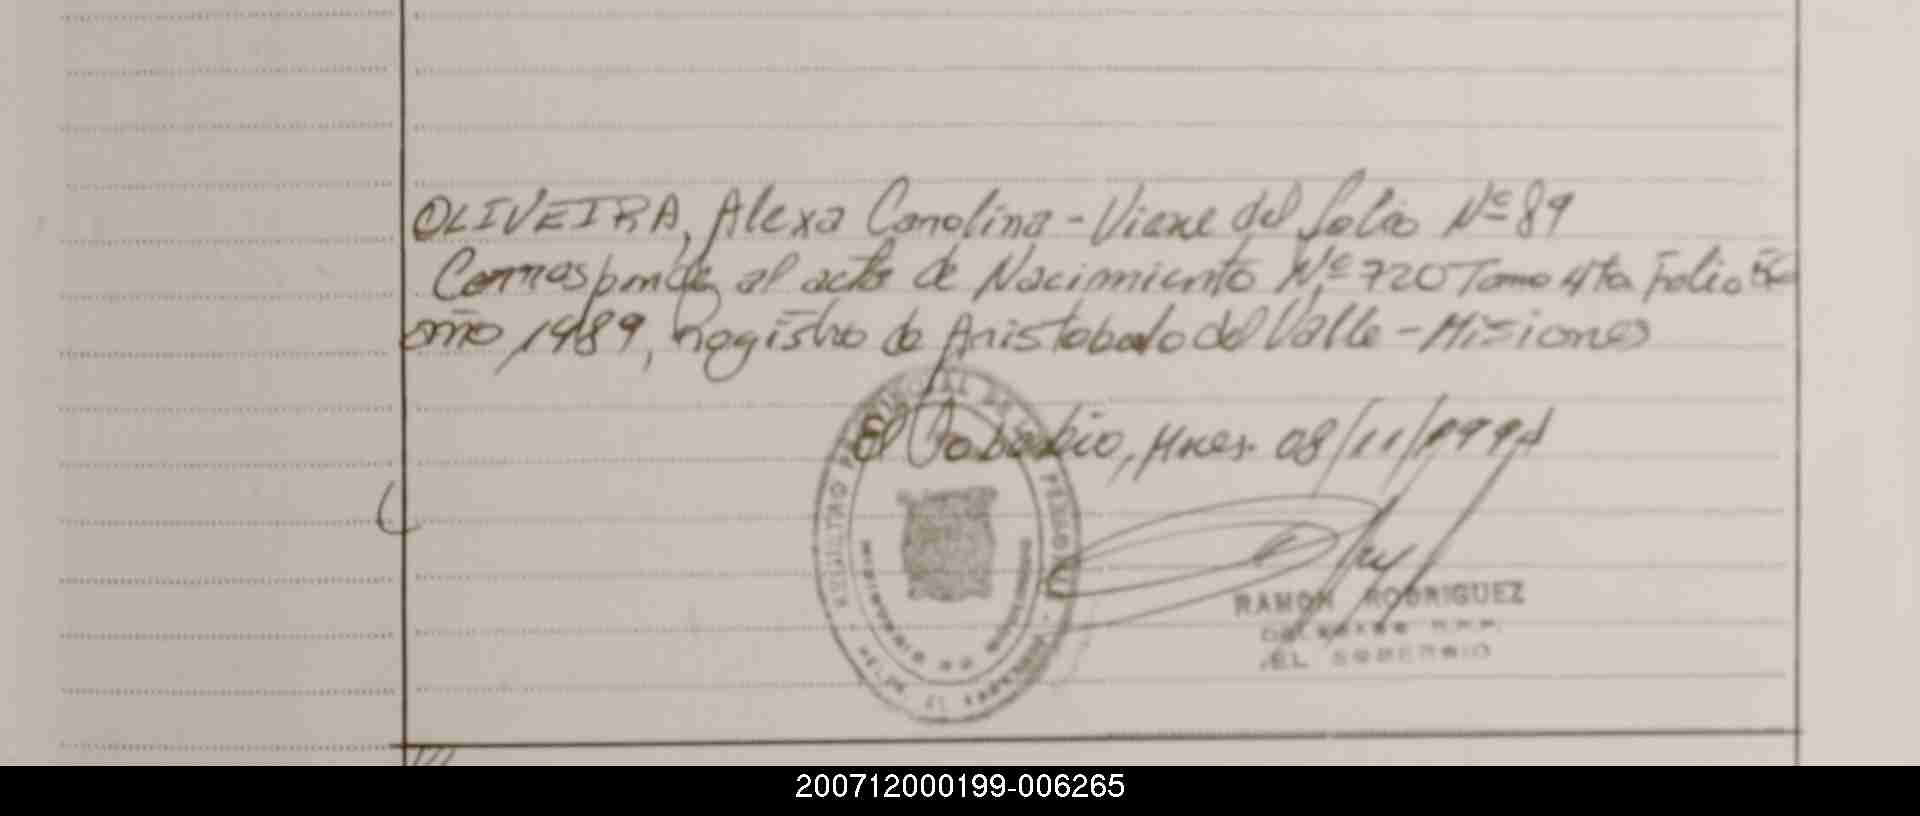 OLIVEIRA, Alexa Carolina - Viene del folio Nº 89
Corresponde al acta de Nacimiento Nº 720 Tomo 4to Folio
año 1989, registro de Aristobulo del Valle - Misiones
El Soberbio, Mnes. 08/11/1994
RAMON RODRIGUEZ
EL SOBERBIO
200712000199-006265